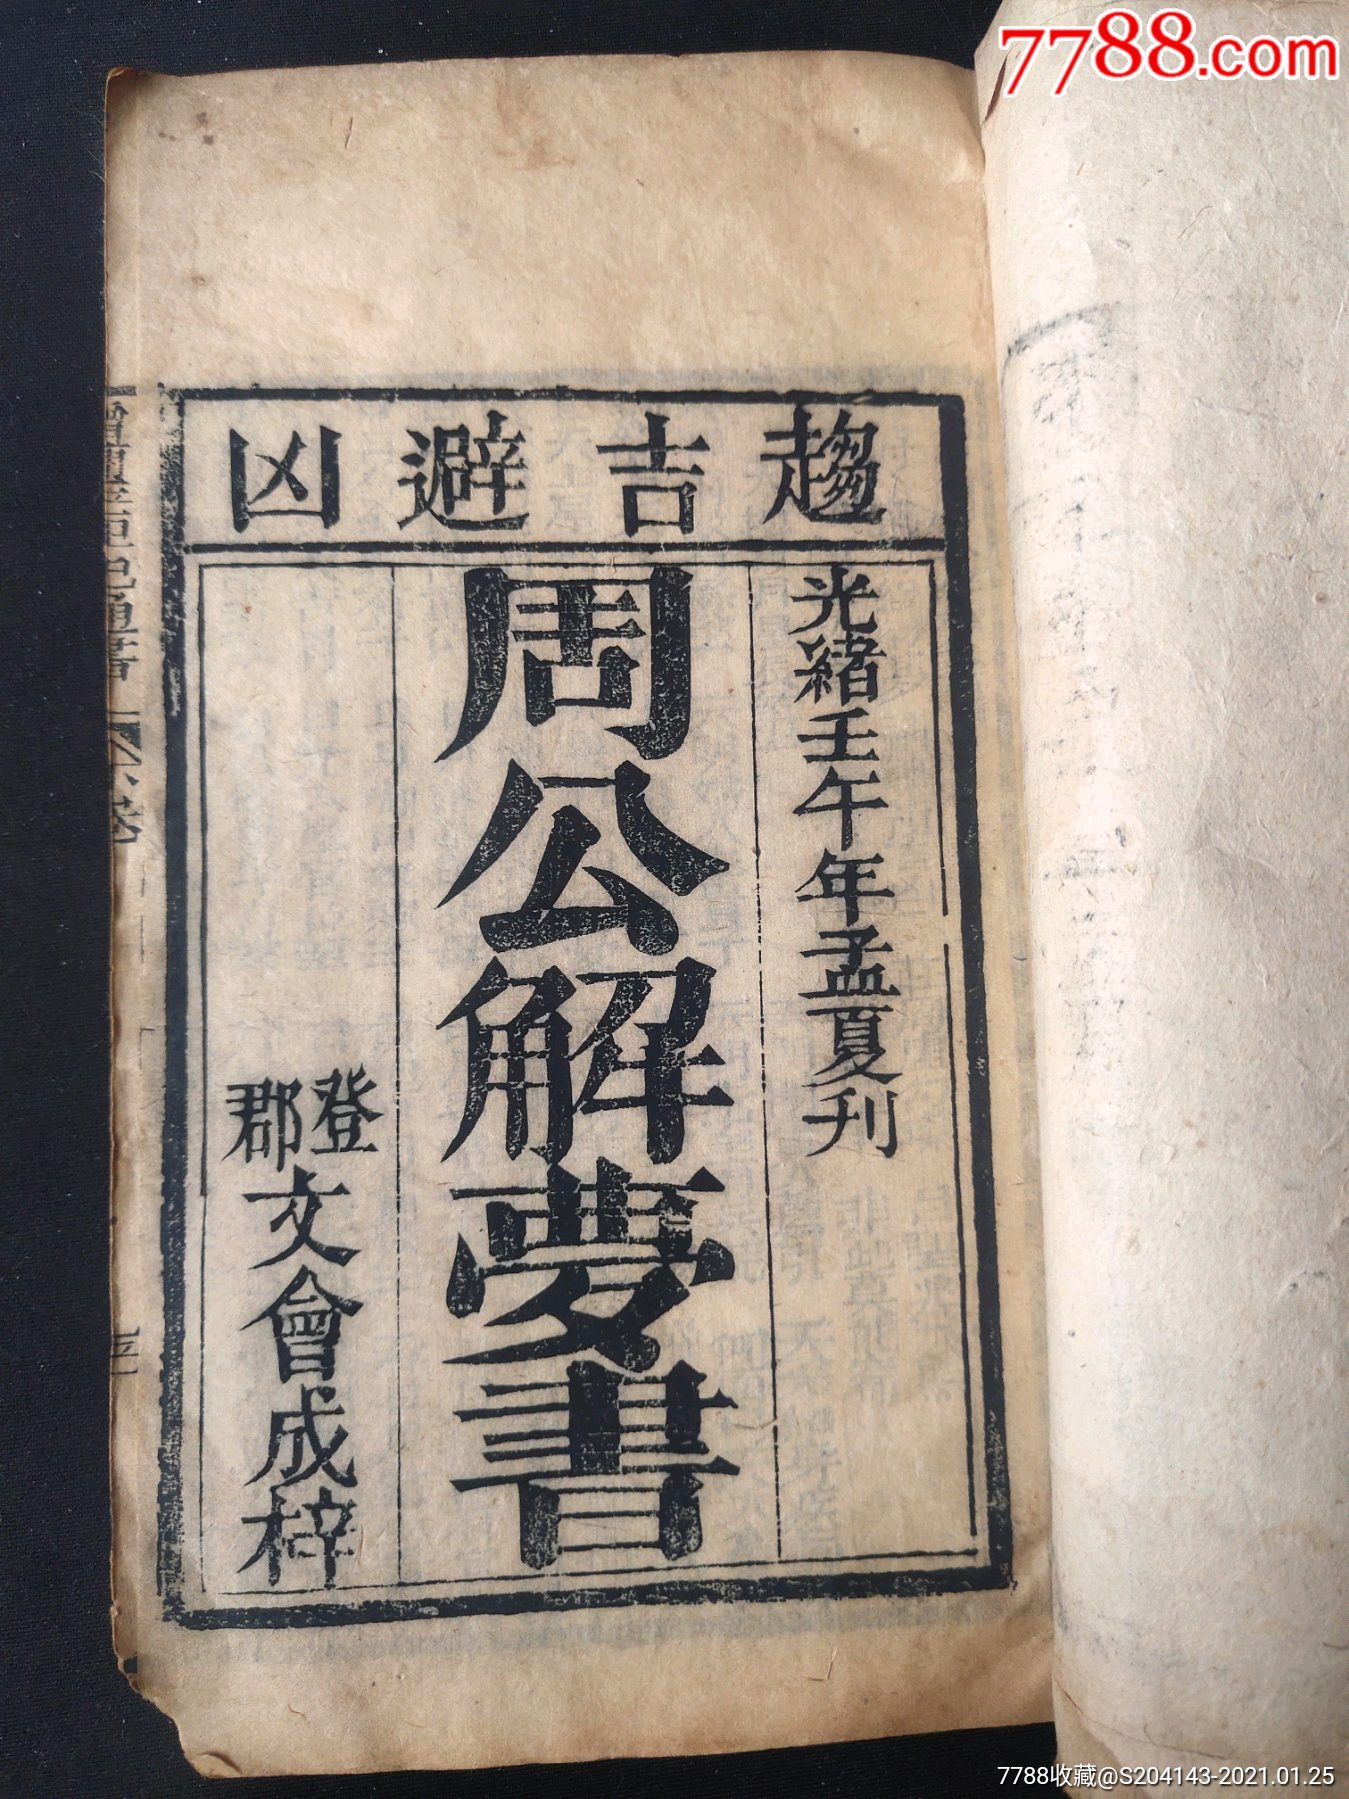 7788.com
趨吉避凶
光緒壬午年孟夏刊
周公解夢書
登郡
文會成梓
7788收藏@S204143-2021.01.25